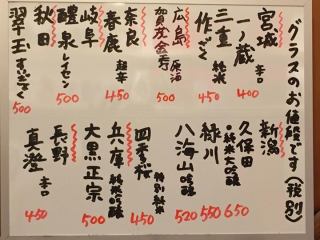 グラスのお値段です(税別)
宮城
一ノ蔵 辛口
400
三重
作 ざく 純米
450
広島
賀茂金秀 原酒
500
奈良
春鹿 超辛
450
岐阜
醴泉 レイセン
500
秋田
翠玉 すいぎょく
500
新潟
久保田 純米大吟醸
650
緑川
550
八海山 吟醸
520
四季桜 特別純米
450
兵庫
大黒正宗 純米吟醸
500
長野
真澄 辛口
450